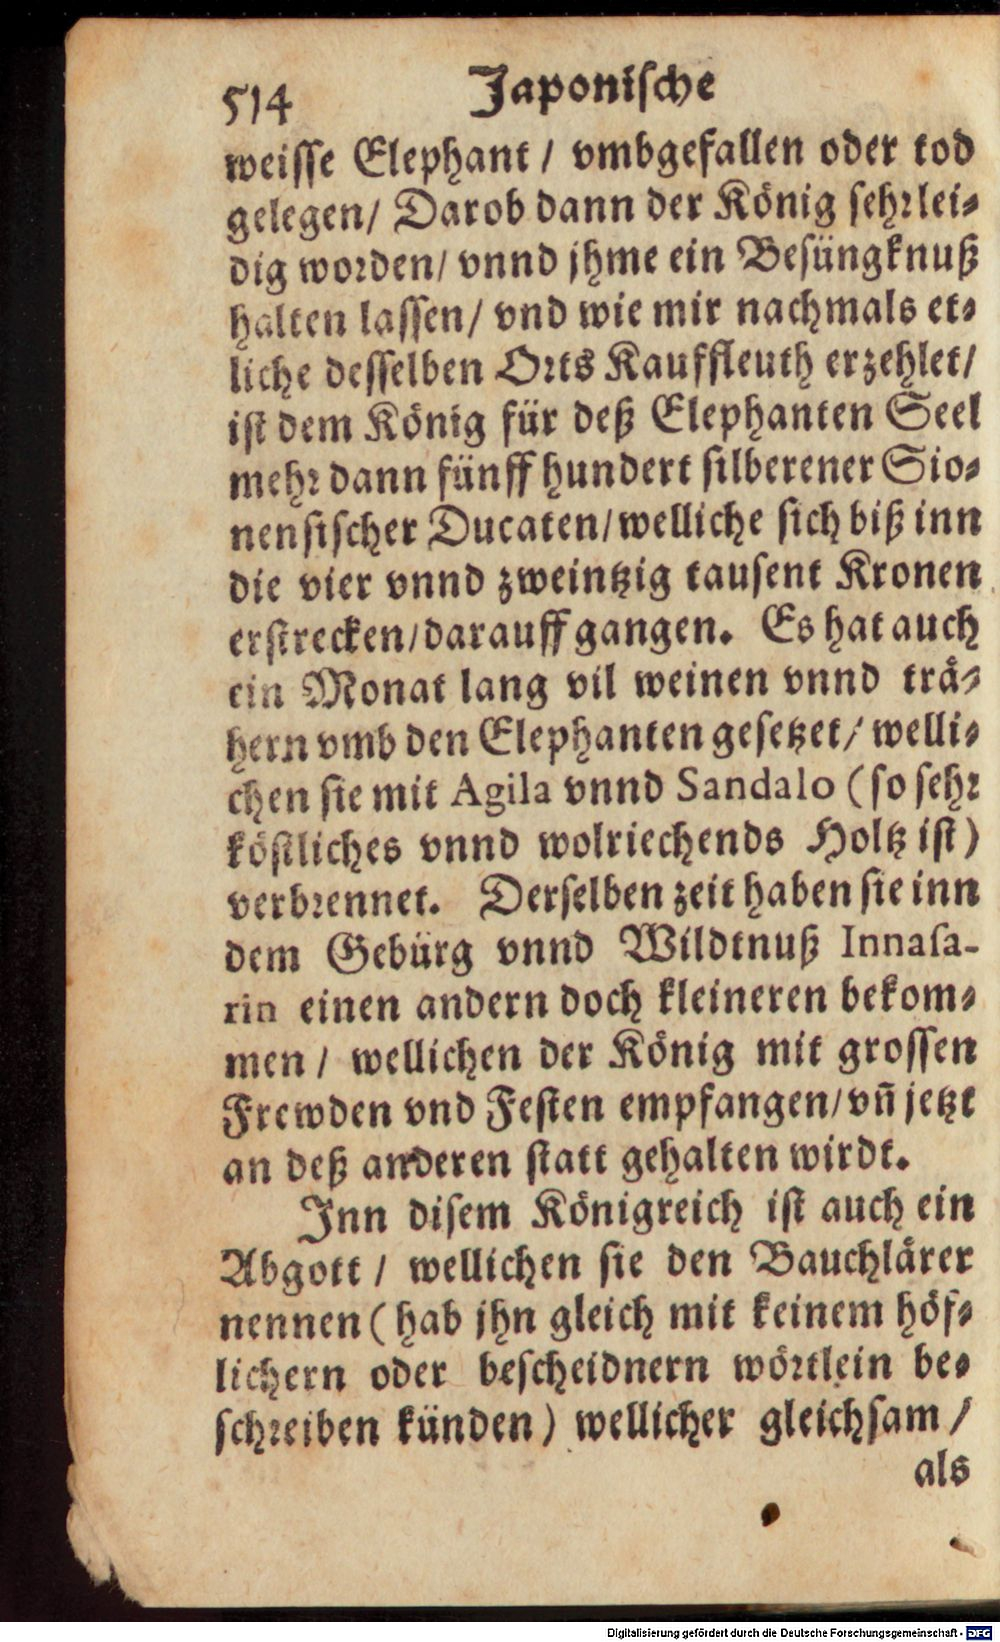 514 Japonische
weisse Elephant / vmbgefallen oder tod
gelegen / Darob dann der König sehr lei-
dig worden / vnnd jhme ein Besüngknuß
halten lassen / vnd wie mir nachmals et-
liche desselben Orts Kauffleuth erzehlet /
ist dem König für deß Elephanten Seel
mehr dann fünff hundert silberener Sio-
nensischer Ducaten / welliche sich biß inn
die vier vnnd zweintzig tausent Kronen
erstrecken / darauff gangen. Es hat auch
ein Monat lang vil weinen vnnd trä-
hern vmb den Elephanten gesetzet / welli-
chen sie mit Agila vnnd Sandalo (so sehr
köstliches vnnd wolriechends Holtz ist)
verbrennet. Derselben zeit haben sie inn
dem Gebürg vnnd Wildtnuß Innasa-
rin einen andern doch kleineren bekom-
men / wellichen der König mit grossen
Frewden vnd Festen empfangen / vñ jetzt
an deß anderen statt gehalten wirdt.
Jnn disem Königreich ist auch ein
Abgott / wellichen sie den Bauchlärer
nennen (hab jhn gleich mit keinem höf-
lichern oder bescheidnern wörtlein be-
schreiben künden) wellicher gleichsam /
als
Digitalisierung gefördert durch die Deutsche Forschungsgemeinschaft - DFG